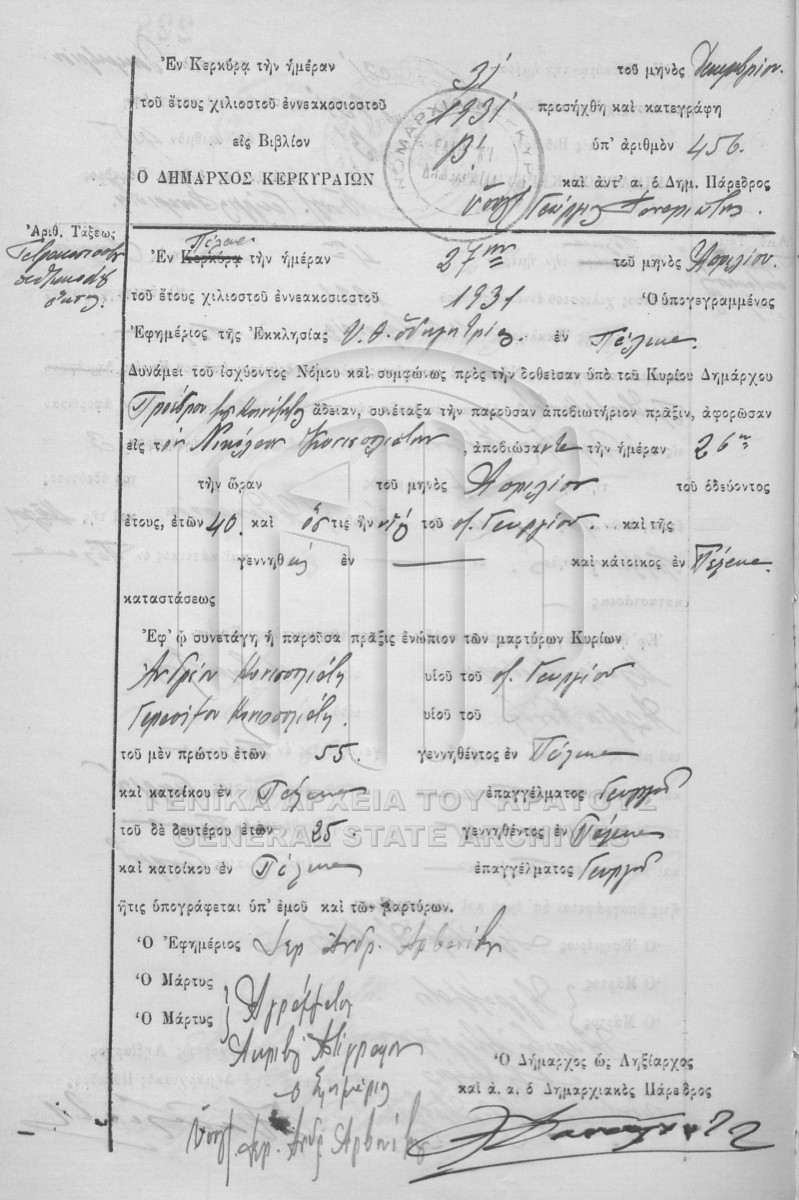 Ἐν Κερκύρᾳ τὴν ἡμέραν 31 τοῦ μηνὸς Δεκεμβρίου.
τοῦ ἔτους χιλιοστοῦ ἐννεακοσιοστοῦ 1931 προσήχθη καὶ κατεγράφη
εἰς Βιβλίον Β' ὑπ' ἀριθμὸν 456.
Ὁ ΔΗΜΑΡΧΟΣ ΚΕΡΚΥΡΑΙΩΝ καὶ ἀντ' α. ὁ Δημ. Πάρεδρος
Γεώργιος
Ἀριθ. Τάξεως
Ἐν Κερκύρᾳ Πέλεκα τὴν ἡμέραν 27ην τοῦ μηνὸς Ἀπριλίου.
τοῦ ἔτους χιλιοστοῦ ἐννεακοσιοστοῦ 1931 Ὁ ὑπογεγραμμένος
Ἐφημέριος τῆς Ἐκκλησίας Υ. Θ. Ὁδηγητρίας. ἐν Πέλεκα.
Δυνάμει τοῦ ἰσχύοντος Νόμου καὶ συμφώνως πρὸς τὴν δοθεῖσαν ὑπὸ τοῦ Κυρίου Δημάρχου
Προέδρου τῆς Κοινότητος ἄδειαν, συνέταξα τὴν παροῦσαν ἀποβιωτήριον πρᾶξιν, ἀφορῶσαν
εἰς τὸν Νικόλαον Κανσπλιώτην, ἀποβιώσαντα τὴν ἡμέραν 26ην
τὴν ὥραν τοῦ μηνὸς Ἀπριλίου τοῦ ὁδεύοντος
ἔτους, ἐτῶν 40. καὶ ὅστις ἦν υἱὸς τοῦ π. Γεωργίου. καὶ τῆς
γεννηθεὶς ἐν — καὶ κάτοικος ἐν Πέλεκα.
καταστάσεως
Ἐφ' ᾧ συνετάγη ἡ παροῦσα πρᾶξις ἐνώπιον τῶν μαρτύρων Κυρίων
Ἀνδρέου υἱοῦ τοῦ π. Γεωργίου
Γερασίμου υἱοῦ τοῦ
τοῦ μὲν πρώτου ἐτῶν 55. γεννηθέντος ἐν Πέλεκα
καὶ κατοίκου ἐν Πέλεκα ἐπαγγέλματος Γεωργοῦ
ΓΕΝΙΚΑ ΑΡΧΕΙΑ ΤΟΥ ΚΡΑΤΟΥΣ
τοῦ δὲ δευτέρου ἐτῶν 25. γεννηθέντος ἐν Πέλεκα
GENERAL STATE ARCHIVES
καὶ κατοίκου ἐν Πέλεκα ἐπαγγέλματος Γεωργοῦ
ἥτις ὑπογράφεται ὑπ' ἐμοῦ καὶ τῶν μαρτύρων.
Ὁ Ἐφημέριος Ἱερ. Ἀνδρ. Ἀρβανίτης
Ὁ Μάρτυς
Ὁ Μάρτυς Ἀγράμματοι
Ἀκριβὲς Ἀντίγραφον
Ὁ Ἐφημέριος
Ὁ Δήμαρχος ὡς Ληξίαρχος
καὶ ἀ. α. ὁ Δημαρχιακὸς Πάρεδρος
Ἱερ. Ἀνδρ. Ἀρβανίτης